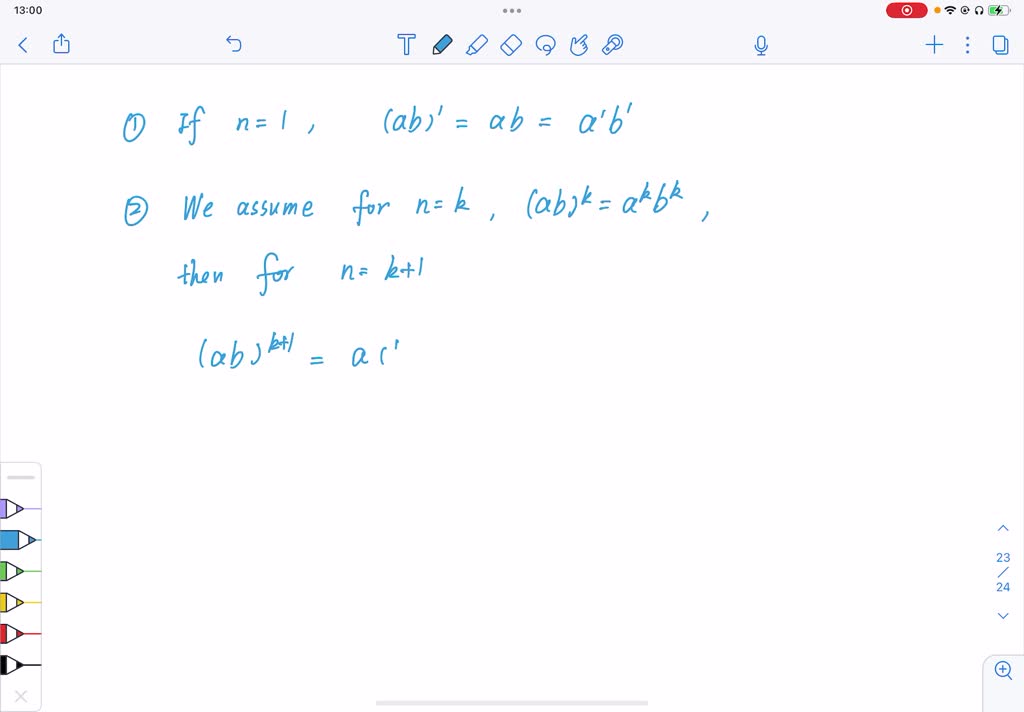 13:00
① If n=1, (ab)¹ = ab = a¹b¹
② We assume for n=k, (ab)ᵏ = aᵏbᵏ,
then for n= k+1
(ab)ᵏ⁺¹ = a (
23
/
24